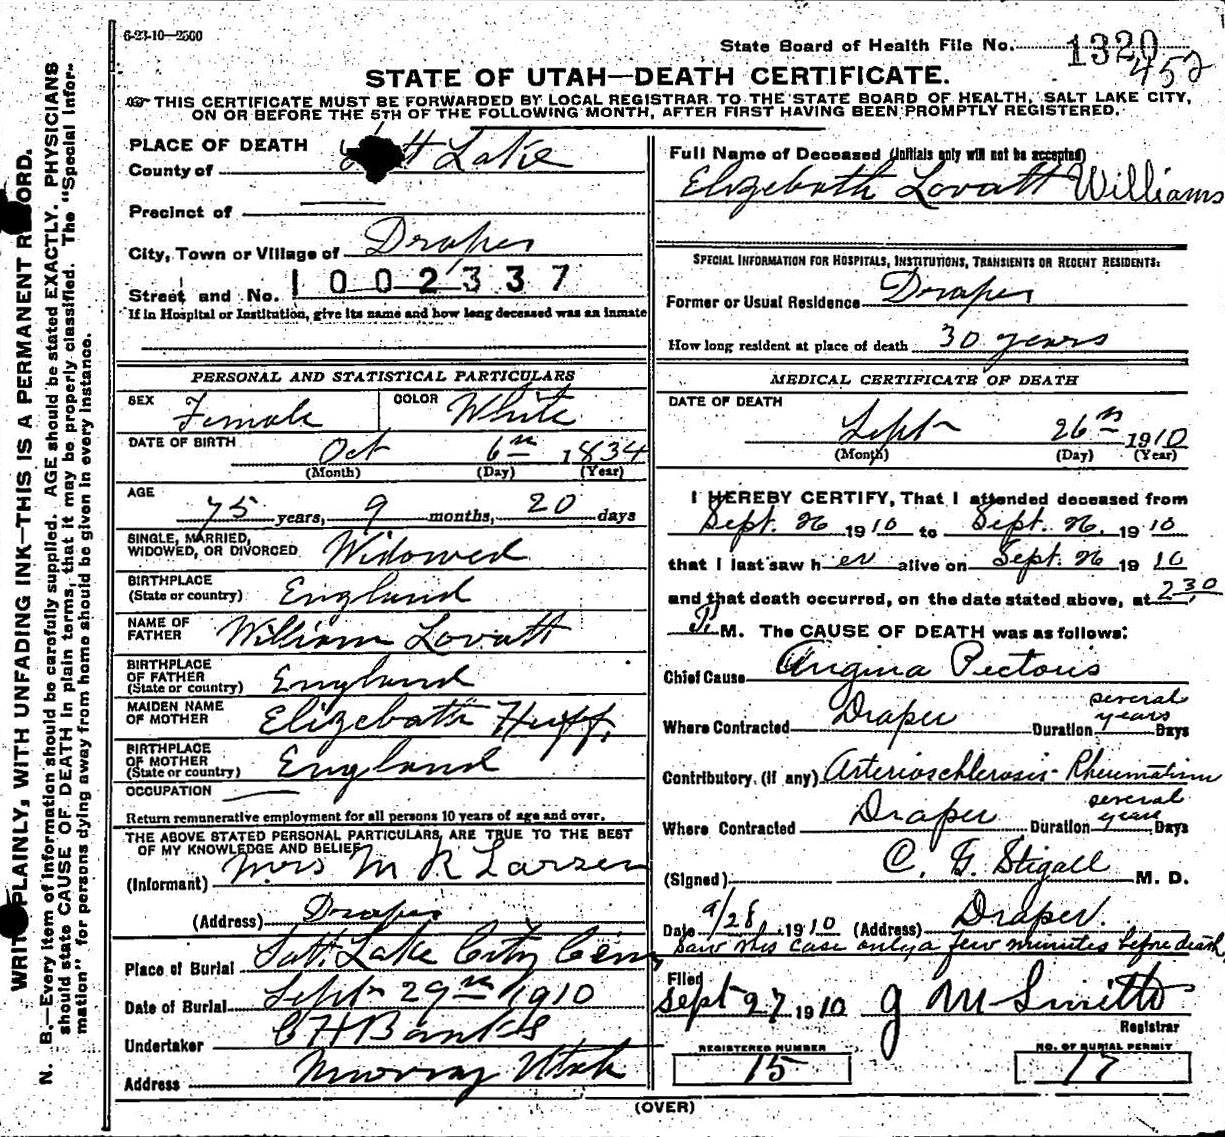 6-23-10—2500
State Board of Health File No. 1320
452
STATE OF UTAH—DEATH CERTIFICATE.
THIS CERTIFICATE MUST BE FORWARDED BY LOCAL REGISTRAR TO THE STATE BOARD OF HEALTH, SALT LAKE CITY,
ON OR BEFORE THE 5TH OF THE FOLLOWING MONTH, AFTER FIRST HAVING BEEN PROMPTLY REGISTERED.
WRITE PLAINLY, WITH UNFADING INK—THIS IS A PERMANENT RECORD.
N. B.—Every item of information should be carefully supplied. AGE should be stated EXACTLY. PHYSICIANS
should state CAUSE OF DEATH in plain terms, that it may be properly classified. The "Special Infor-
mation" for persons dying away from home should be given in every instance.
PLACE OF DEATH
County of Salt Lake
Precinct of —
City, Town or Village of Draper
Street and No. 1002337
If in Hospital or Institution, give its name and how long deceased was an inmate
PERSONAL AND STATISTICAL PARTICULARS
SEX Female COLOR White
DATE OF BIRTH Oct 6th 1834
(Month) (Day) (Year)
AGE
75 years, 9 months, 20 days
SINGLE, MARRIED,
WIDOWED, OR DIVORCED Widowed
BIRTHPLACE
(State or country) England
NAME OF
FATHER William Lovatt
BIRTHPLACE
OF FATHER
(State or country) England
MAIDEN NAME
OF MOTHER Elizebath Huff.
BIRTHPLACE
OF MOTHER
(State or country) England
OCCUPATION —
Return remunerative employment for all persons 10 years of age and over.
THE ABOVE STATED PERSONAL PARTICULARS, ARE TRUE TO THE BEST
OF MY KNOWLEDGE AND BELIEF
(Informant) Mrs M R Larsen
(Address) Draper
Place of Burial Salt Lake City Cem
Date of Burial Sept 29th 1910
Undertaker C H Banks
Address Murray Utah
Full Name of Deceased (Initials only will not be accepted)
Elizebath Lovatt Williams
SPECIAL INFORMATION FOR HOSPITALS, INSTITUTIONS, TRANSIENTS OR RECENT RESIDENTS:
Former or Usual Residence Draper
How long resident at place of death 30 years
MEDICAL CERTIFICATE OF DEATH
DATE OF DEATH
Sept 26th 1910
(Month) (Day) (Year)
I HEREBY CERTIFY, That I attended deceased from
Sept. 26 1910 to Sept. 26. 1910
that I last saw her alive on Sept. 26 1910
and that death occurred, on the date stated above, at 2.30
P. M. The CAUSE OF DEATH was as follows:
Chief Cause Angina Pectoris
Where Contracted Draper Duration several years Days
Contributory, (if any) Arterioschlerosis- Rheumatism
Where Contracted Draper Duration several years Days
(Signed) C. G. Stigall M. D.
Date 9/28 1910 (Address) Draper.
Saw this case only a few minutes before death,
Filed
Sept 27 1910 J M Smith
Registrar
REGISTERED NUMBER
15
NO. OF BURIAL PERMIT
17
(OVER)